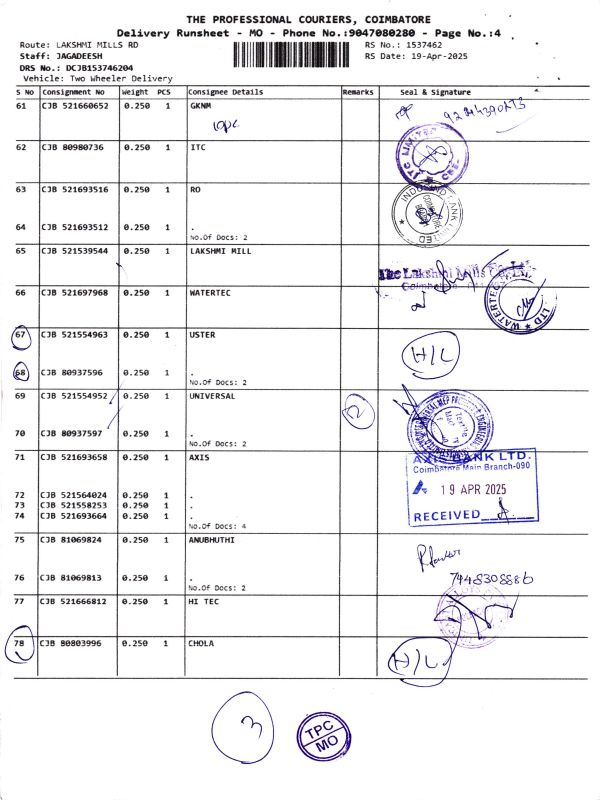 THE PROFESSIONAL COURIERS, COIMBATORE
Delivery Runsheet - MO - Phone No.:9047080280 - Page No.:4
Route: LAKSHMI MILLS RD RS No.: 1537462
Staff: JAGADEESH RS Date: 19-Apr-2025
DRS No.: DCJB153746204
Vehicle: Two Wheeler Delivery
S No Consignment No Weight PCS Consignee Details Remarks Seal & Signature
61 CJB 521660652 0.250 1 GKNM
10pc
62 CJB 80980736 0.250 1 ITC
ITC LIMITED
CBE-
63 CJB 521693516 0.250 1 RO
INDUSIND BANK LIMITED
COIMBATORE
64 CJB 521693512 0.250 1 .
No.Of Docs: 2
65 CJB 521539544 0.250 1 LAKSHMI MILL
The Lakshmi Mills Co. Ltd
Coimbatore
66 CJB 521697968 0.250 1 WATERTEC
WATERTEC LTD
67 CJB 521554963 0.250 1 USTER
H/L
68 CJB 80937596 0.250 1 .
No.Of Docs: 2
69 CJB 521554952 0.250 1 UNIVERSAL
2
UNIVERSAL MEP PROJECTS ENGINEERING
70 CJB 80937597 0.250 1 .
No.Of Docs: 2
71 CJB 521693658 0.250 1 AXIS
AXIS BANK LTD.
Coimbatore Main Branch-090
19 APR 2025
RECEIVED
72 CJB 521564024 0.250 1 .
73 CJB 521558253 0.250 1 .
74 CJB 521693664 0.250 1 .
No.Of Docs: 4
75 CJB 81069824 0.250 1 ANUBHUTHI
7448308886
76 CJB 81069813 0.250 1 .
No.Of Docs: 2
77 CJB 521666812 0.250 1 HI TEC
78 CJB 80803996 0.250 1 CHOLA
H/L
3
TPC
MO